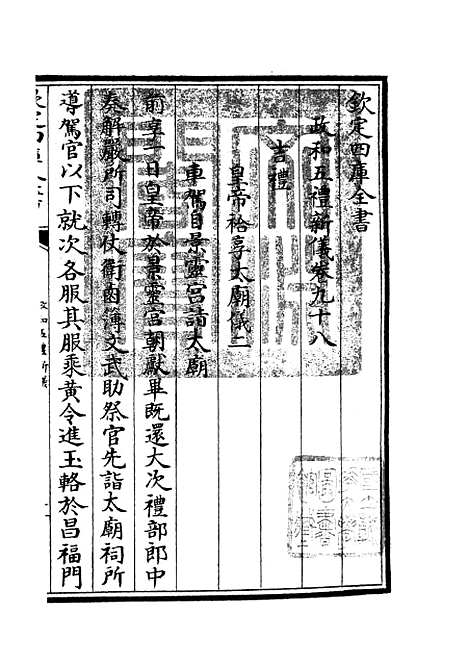 欽定四庫全書
政和五禮新儀卷九十八
吉禮
皇帝祫享太廟儀二
車駕自景靈宮詣太廟
前享一日皇帝於景靈宮朝獻畢既還大次禮部郎中
奏解嚴所司轉仗衛鹵簿文武助祭官先詣太廟祠所
導駕官以下就次各服其服乘黃令進玉輅於昌福門
政和五禮新儀